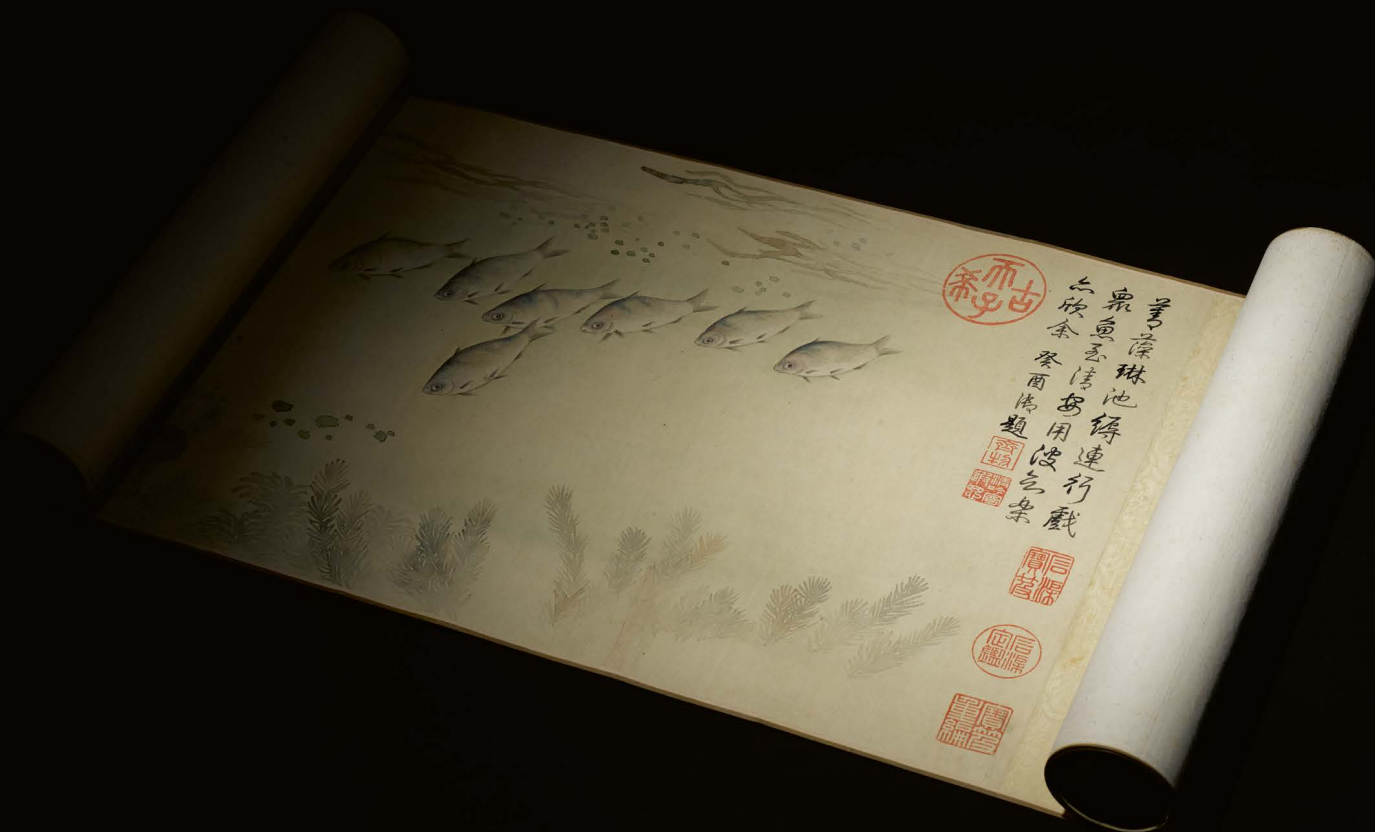 菁藻琳池縟連行戲
眾魚至清安用知樂
亦欣余 癸酉御題
古希天子
齊物
石渠寶笈
石渠定鑑
寶笈重編